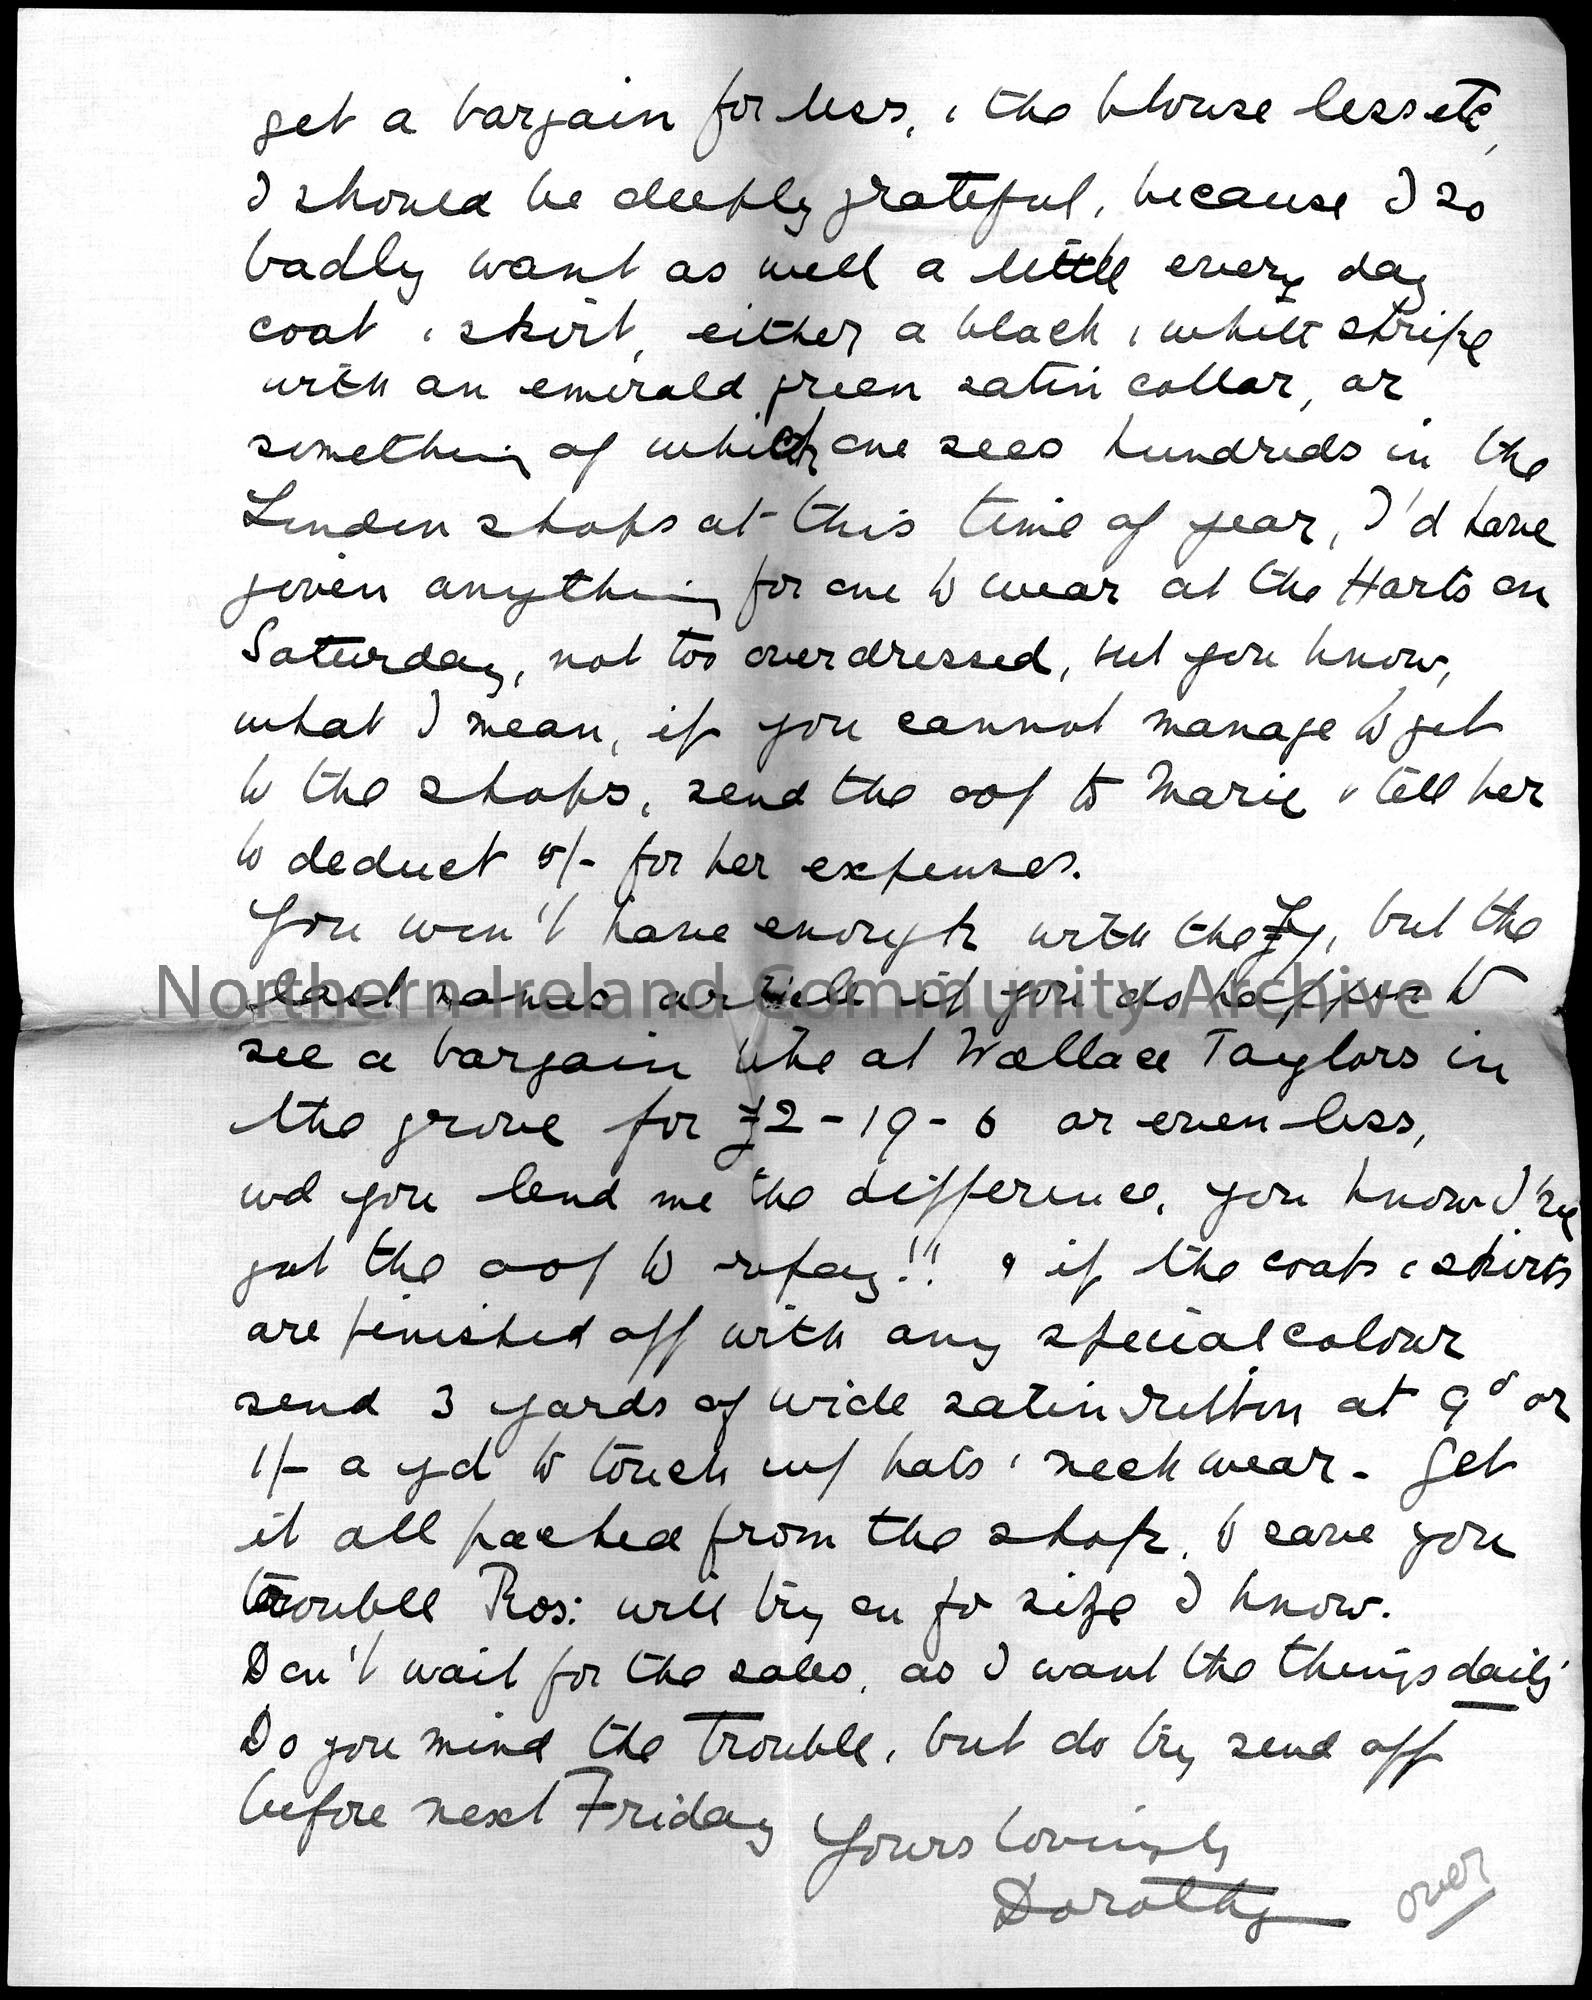 get a bargain for less, & the blouse less etc,
I should be deeply grateful, because I so
badly want as well a little every day
coat & skirt, either a black & white stripe
with an emerald green satin collar, or
something of which one sees hundreds in the
London shops at this time of year, I'd have
given anything for one to wear at the Harts on
Saturday, not too overdressed, but you know,
what I mean, if you cannot manage to get
to the shops, send the oof to Marie & tell her
to deduct 5/- for her expenses.
You won't have enough with the but the
last named article if you do happen to
Northern Ireland Community Archive
see a bargain like at Wallace Taylors in
the grove for £2-19-6 or even less,
wd you lend me the difference, you know I've
got the oof to repay!! & if the coats & skirts
are finished off with any special colour
send 3 yards of wide satin ribbon at 9d or
1/- a yd to touch up hats & neck wear. Get
it all packed from the shop, to save you
trouble Ros: will try on for size I know.
Don't wait for the sales, as I want the things daily
Do you mind the trouble, but do try send off
before next Friday
Yours lovingly
Dorothy
over